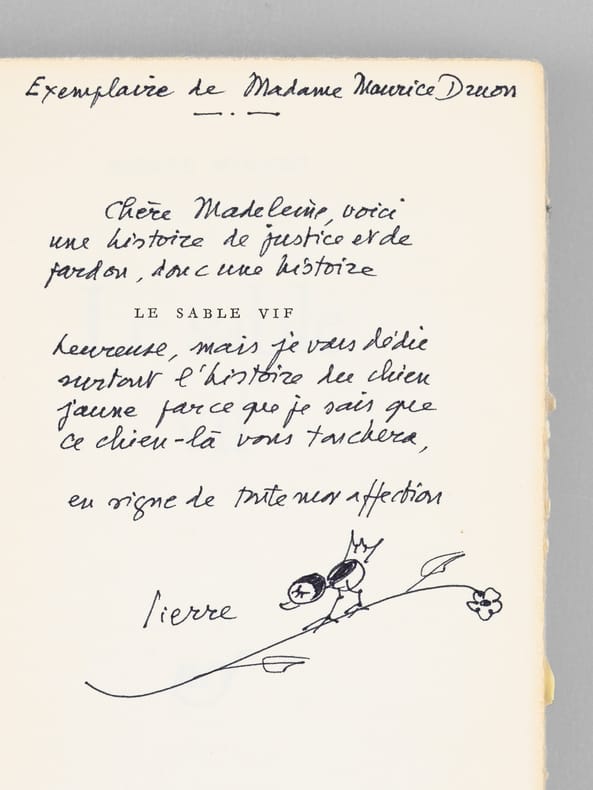 Exemplaire de Madame Maurice Druon
Chère Madeleine, voici
une histoire de justice et de
pardon, donc une histoire
LE SABLE VIF
heureuse, mais je vous dédie
surtout l'histoire du chien
jaune parce que je sais que
ce chien-là vous touchera,
en signe de toute mon affection
Pierre